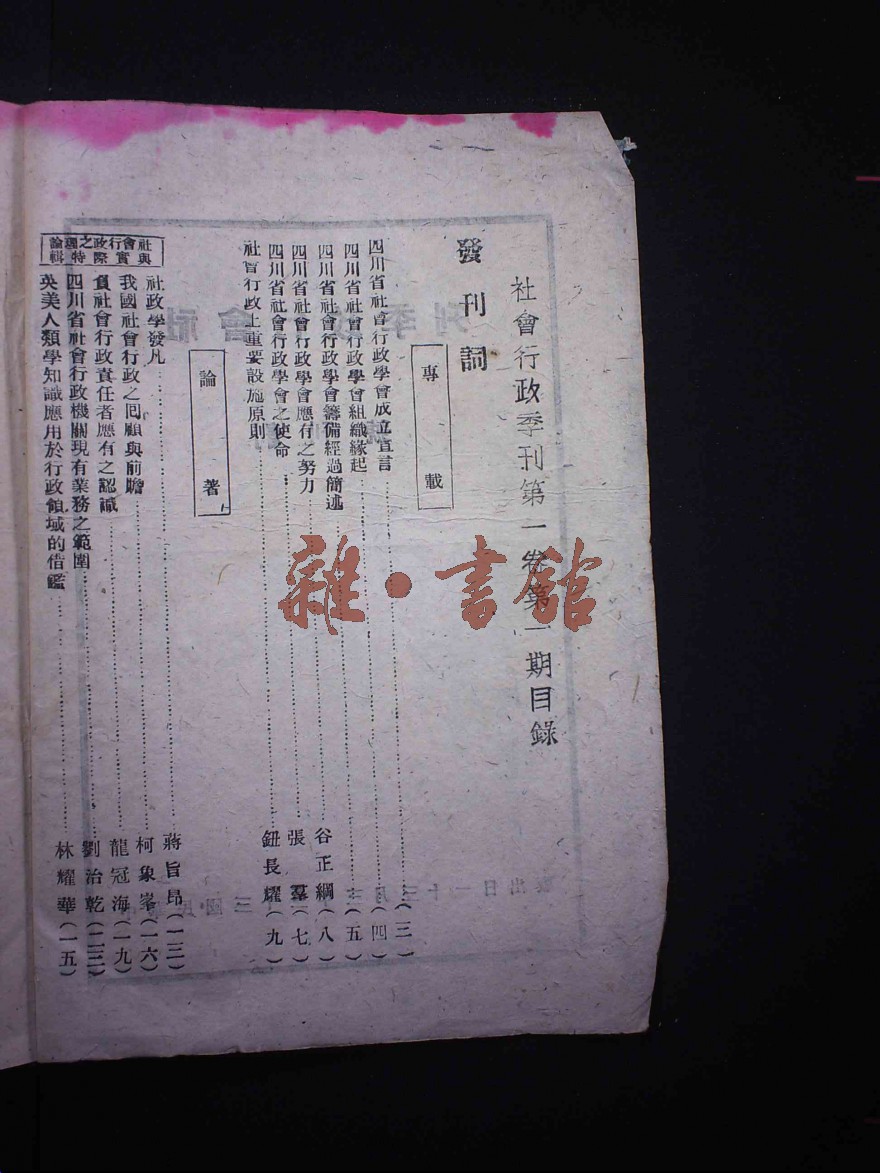 社會行政季刊第一卷第一期目錄
發刊詞
專載
四川省社會行政學會成立宣言……(三)
四川省社會行政學會組織緣起……(四)
四川省社會行政學會籌備經過簡述……(五)
四川省社會行政學會應有之努力……谷正綱(八)
四川省社會行政學會之使命……張羣(七)
社會行政上重要設施原則……鈕長耀(九)
論著
社會行政之理論
與實際特輯
社政學發凡……蔣旨昂(一三)
我國社會行政之囘顧與前瞻……柯象峯(一六)
負社會行政責任者應有之認識……龍冠海(一九)
四川省社會行政機關現有業務之範圍……劉治乾(二三)
英美人類學知識應用於行政領域的借鑑……林耀華(一五)
雜·書館